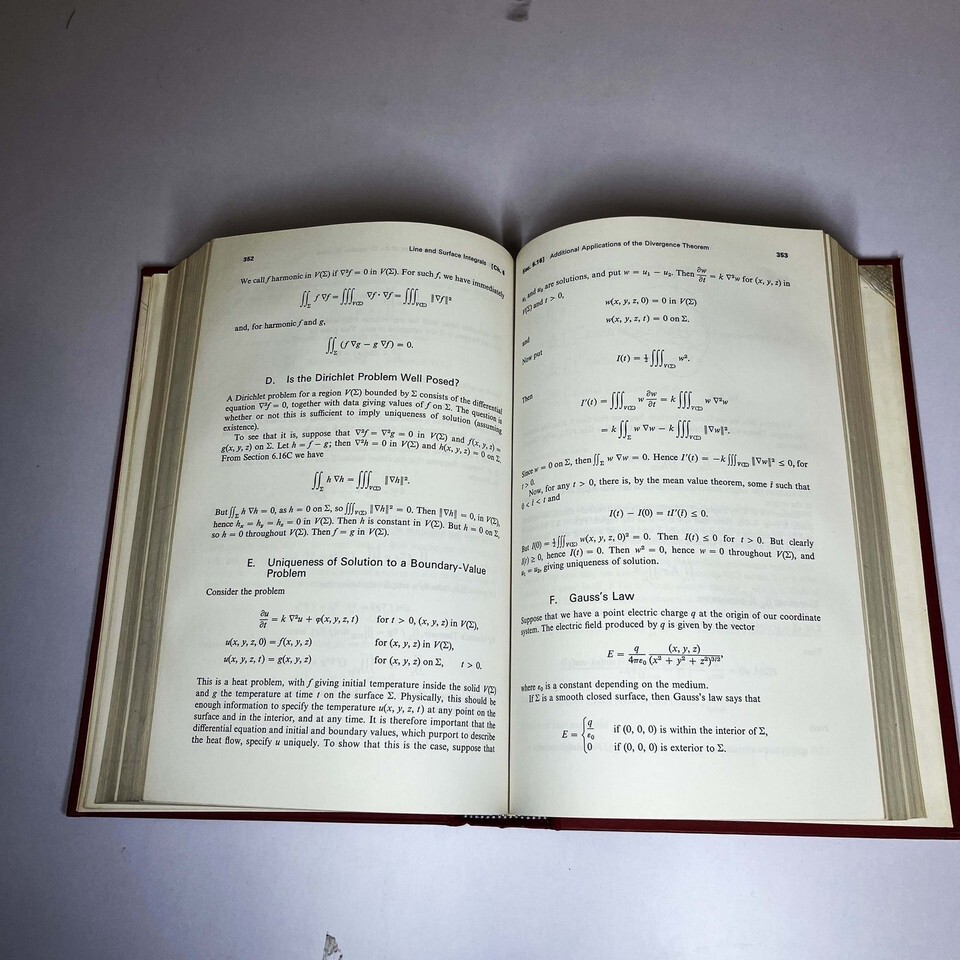 352
Line and Surface Integrals [Ch. 6
We call f harmonic in V(Σ) if ∇²f = 0 in V(Σ). For such f, we have immediately
∬_Σ f ∇f = ∭_V(Σ) ∇f · ∇f = ∭_V(Σ) ‖∇f‖²
and, for harmonic f and g,
∬_Σ (f ∇g − g ∇f) = 0.
D. Is the Dirichlet Problem Well Posed?
A Dirichlet problem for a region V(Σ) bounded by Σ consists of the differential
equation ∇²f = 0, together with data giving values of f on Σ. The question is
whether or not this is sufficient to imply uniqueness of solution (assuming
existence).
To see that it is, suppose that ∇²f = ∇²g = 0 in V(Σ) and f(x, y, z) =
g(x, y, z) on Σ. Let h = f − g; then ∇²h = 0 in V(Σ) and h(x, y, z) = 0 on Σ.
From Section 6.16C we have
∬_Σ h ∇h = ∭_V(Σ) ‖∇h‖².
But ∬_Σ h ∇h = 0, as h = 0 on Σ, so ∭_V(Σ) ‖∇h‖² = 0. Then ‖∇h‖ = 0, in V(Σ),
hence hₓ = h_y = h_z = 0 in V(Σ). Then h is constant in V(Σ). But h = 0 on Σ,
so h = 0 throughout V(Σ). Then f = g in V(Σ).
E. Uniqueness of Solution to a Boundary-Value
Problem
Consider the problem
∂u/∂t = k ∇²u + φ(x, y, z, t) for t > 0, (x, y, z) in V(Σ),
u(x, y, z, 0) = f(x, y, z) for (x, y, z) in V(Σ),
u(x, y, z, t) = g(x, y, z) for (x, y, z) on Σ, t > 0.
This is a heat problem, with f giving initial temperature inside the solid V(Σ)
and g the temperature at time t on the surface Σ. Physically, this should be
enough information to specify the temperature u(x, y, z, t) at any point on the
surface and in the interior, and at any time. It is therefore important that the
differential equation and initial and boundary values, which purport to describe
the heat flow, specify u uniquely. To show that this is the case, suppose that
Sec. 6.16] Additional Applications of the Divergence Theorem
353
u₁ and u₂ are solutions, and put w = u₁ − u₂. Then ∂w/∂t = k ∇²w for (x, y, z) in
V(Σ) and t > 0,
w(x, y, z, 0) = 0 in V(Σ)
and
w(x, y, z, t) = 0 on Σ.
Now put
I(t) = ½ ∭_V(Σ) w².
Then
I′(t) = ∭_V(Σ) w ∂w/∂t = k ∭_V(Σ) w ∇²w
= k ∬_Σ w ∇w − k ∭_V(Σ) ‖∇w‖².
Since w = 0 on Σ, then ∬_Σ w ∇w = 0. Hence I′(t) = −k ∭_V(Σ) ‖∇w‖² ≤ 0, for
t > 0.
Now, for any t > 0, there is, by the mean value theorem, some t̄ such that
0 < t̄ < t and
I(t) − I(0) = tI′(t̄) ≤ 0.
But I(0) = ½ ∭_V(Σ) w(x, y, z, 0)² = 0. Then I(t) ≤ 0 for t > 0. But clearly
I(t) ≥ 0, hence I(t) = 0. Then w² = 0, hence w = 0 throughout V(Σ), and
u₁ = u₂, giving uniqueness of solution.
F. Gauss's Law
Suppose that we have a point electric charge q at the origin of our coordinate
system. The electric field produced by q is given by the vector
E = q/(4πε₀) (x, y, z)/(x² + y² + z²)^3/2,
where ε₀ is a constant depending on the medium.
If Σ is a smooth closed surface, then Gauss's law says that
E = { q/ε₀ if (0, 0, 0) is within the interior of Σ,
0 if (0, 0, 0) is exterior to Σ.